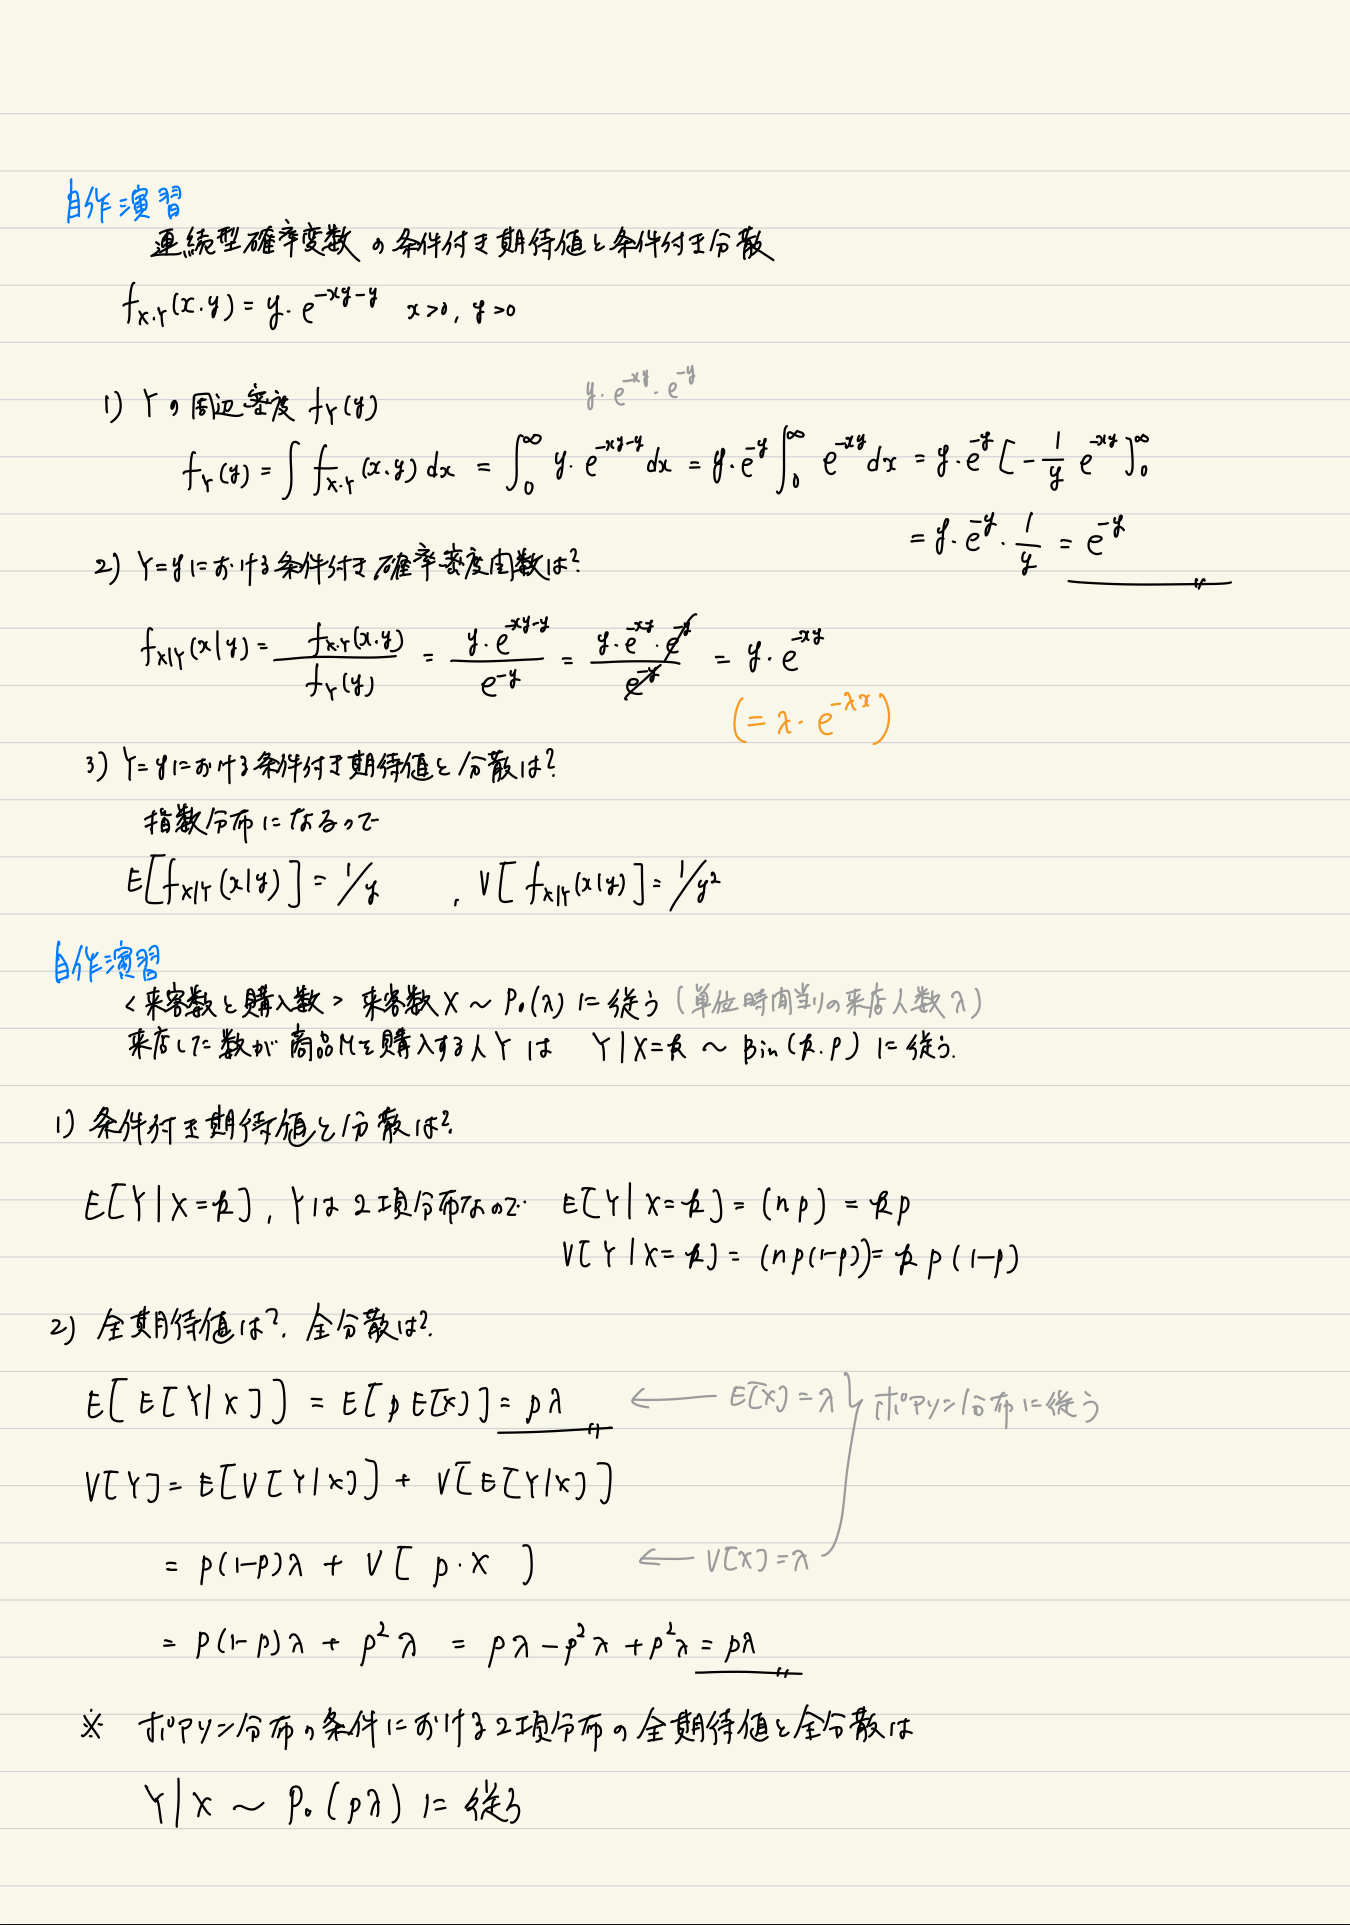 自作演習
連続型確率変数の条件付き期待値と条件付き分散
f_{X,Y}(x,y) = y・e^{-xy-y}  x>0, y>0
y・e^{-xy}・e^{-y}
1) Yの周辺密度 f_Y(y)
f_Y(y) = ∫ f_{X,Y}(x,y) dx = ∫_0^∞ y・e^{-xy-y} dx = y・e^{-y} ∫_0^∞ e^{-xy} dx = y・e^{-y} [ -1/y e^{-xy} ]_0^∞
= y・e^{-y}・1/y = e^{-y}
2) Y=yにおける条件付き確率密度関数は?
f_{X|Y}(x|y) = f_{X,Y}(x,y) / f_Y(y) = y・e^{-xy-y} / e^{-y} = y・e^{-xy}・e^{-y} / e^{-y} = y・e^{-xy}
(= λ・e^{-λx})
3) Y=yにおける条件付き期待値と分散は?
指数分布になるので
E[f_{X|Y}(x|y)] = 1/y , V[f_{X|Y}(x|y)] = 1/y²
自作演習
<来客数と購入数> 来客数X ~ Po(λ)に従う (単位時間当りの来店人数λ)
来店した数が商品Mを購入する人Yは Y|X=k ~ Bin(k,p)に従う.
1) 条件付き期待値と分散は?
E[Y|X=k], Yは2項分布なので E[Y|X=k] = (np) = kp
V[Y|X=k] = (np(1-p)) = kp(1-p)
2) 全期待値は?. 全分散は?.
E[E[Y|X]] = E[pE[X]] = pλ ← E[X]=λ } ポアソン分布に従う
V[Y] = E[V[Y|X]] + V[E[Y|X]]
= p(1-p)λ + V[p・X] ← V[X]=λ
= p(1-p)λ + p²λ = pλ - p²λ + p²λ = pλ
※ ポアソン分布の条件における2項分布の全期待値と全分散は
Y|X ~ Po(pλ)に従う